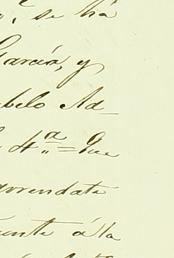 se há
García, y
abelo Ad-
4.ª = Que
arrendata
ente á la